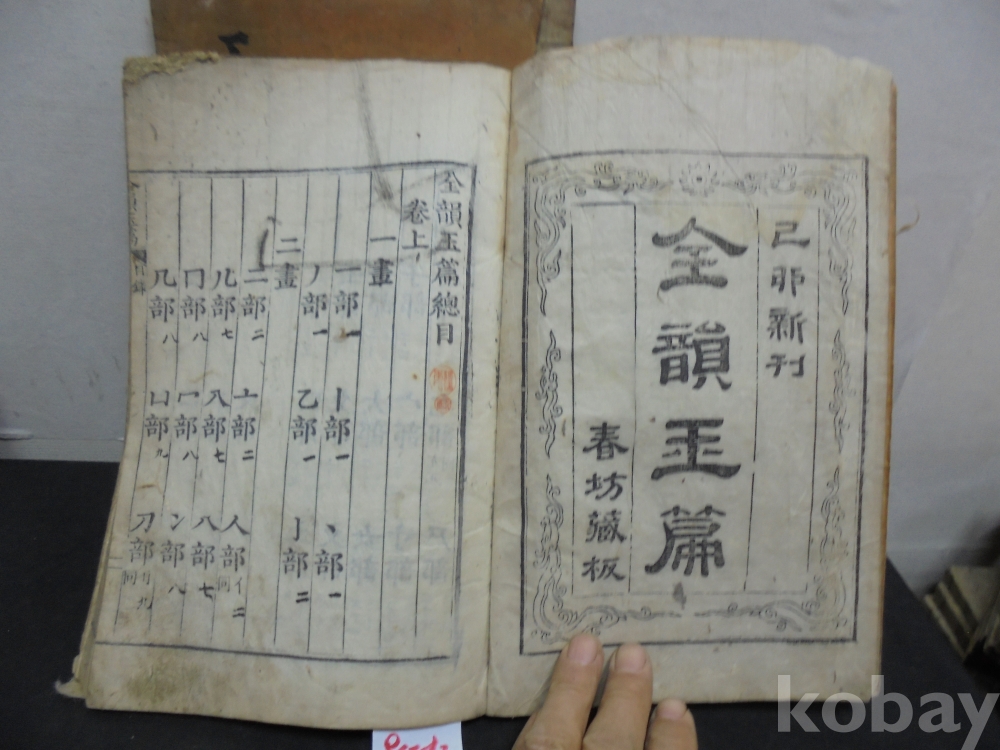 己卯新刊
全韻玉篇
春坊藏板
全韻玉篇總目
卷上
一畫
一部一 丨部一 丶部一
丿部一 乙部一 亅部二
二畫
二部二 亠部二 人部亻同二
儿部七 入部七 八部七
冂部八 冖部八 冫部八
几部八 凵部九 刀部刂同九
kobay